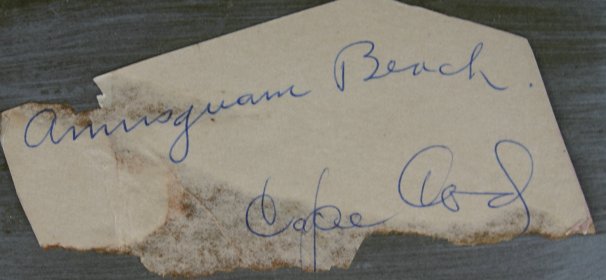 Annisquam Beach.
Cape Cod